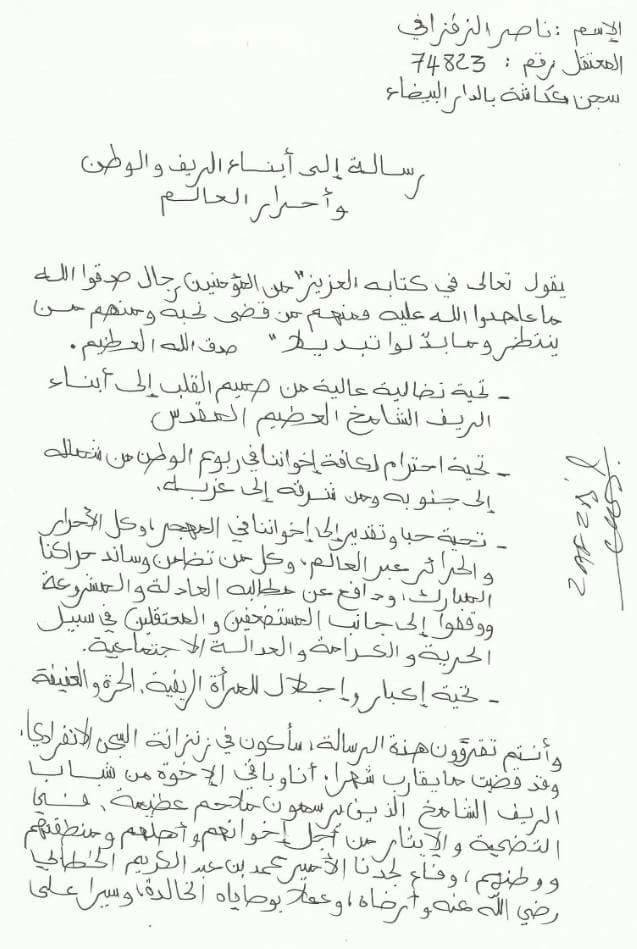 الإسم : ناصر الزفزافي
المعتقل رقم : 74823
سجن عكاشة بالدار البيضاء
رسالة إلى أبناء الريف والوطن
وأحرار العالم
يقول تعالى في كتابه العزيز "من المؤمنين رجال صدقوا الله
ما عاهدوا الله عليه فمنهم من قضى نحبه ومنهم من
ينتظر وما بدّلوا تبديلا" صدق الله العظيم.
- تحية نضالية عالية من صميم القلب إلى أبناء
الريف الشامخ العظيم المقدس
- تحية احترام لكافة إخواننا في ربوع الوطن من شماله
إلى جنوبه ومن شرقه إلى غربه.
- تحية حب وتقدير إلى إخواننا في المهجر، وكل الأحرار
والحرائر عبر العالم، وكل من تضامن وساند حراكنا
المبارك، ودافع عن مطالبه العادلة والمشروعة
ووقفوا إلى جانب المستضعفين والمعتقلين في سبيل
الحرية والكرامة والعدالة الاجتماعية.
- تحية إكبار وإجلال للمرأة الريفية، الحرة والعفيفة
وأنتم تقرؤون هذة الرسالة، سأكون في زنزانة السجن الانفرادي،
وقد قضيت ما يقارب شهرا، أنا وباقي الإخوة من شباب
الريف الشامخ الذين يرسمون ملاحم عظيمة، في
التضحية والإيثار من أجل إخوانهم وأهلهم ومنطقتهم
ووطنهم، وفاء لجدنا الأمير محمد بن عبد الكريم الخطابي
رضي الله عنه وأرضاه، وعملا بوصاياه الخالدة، وسيرا على